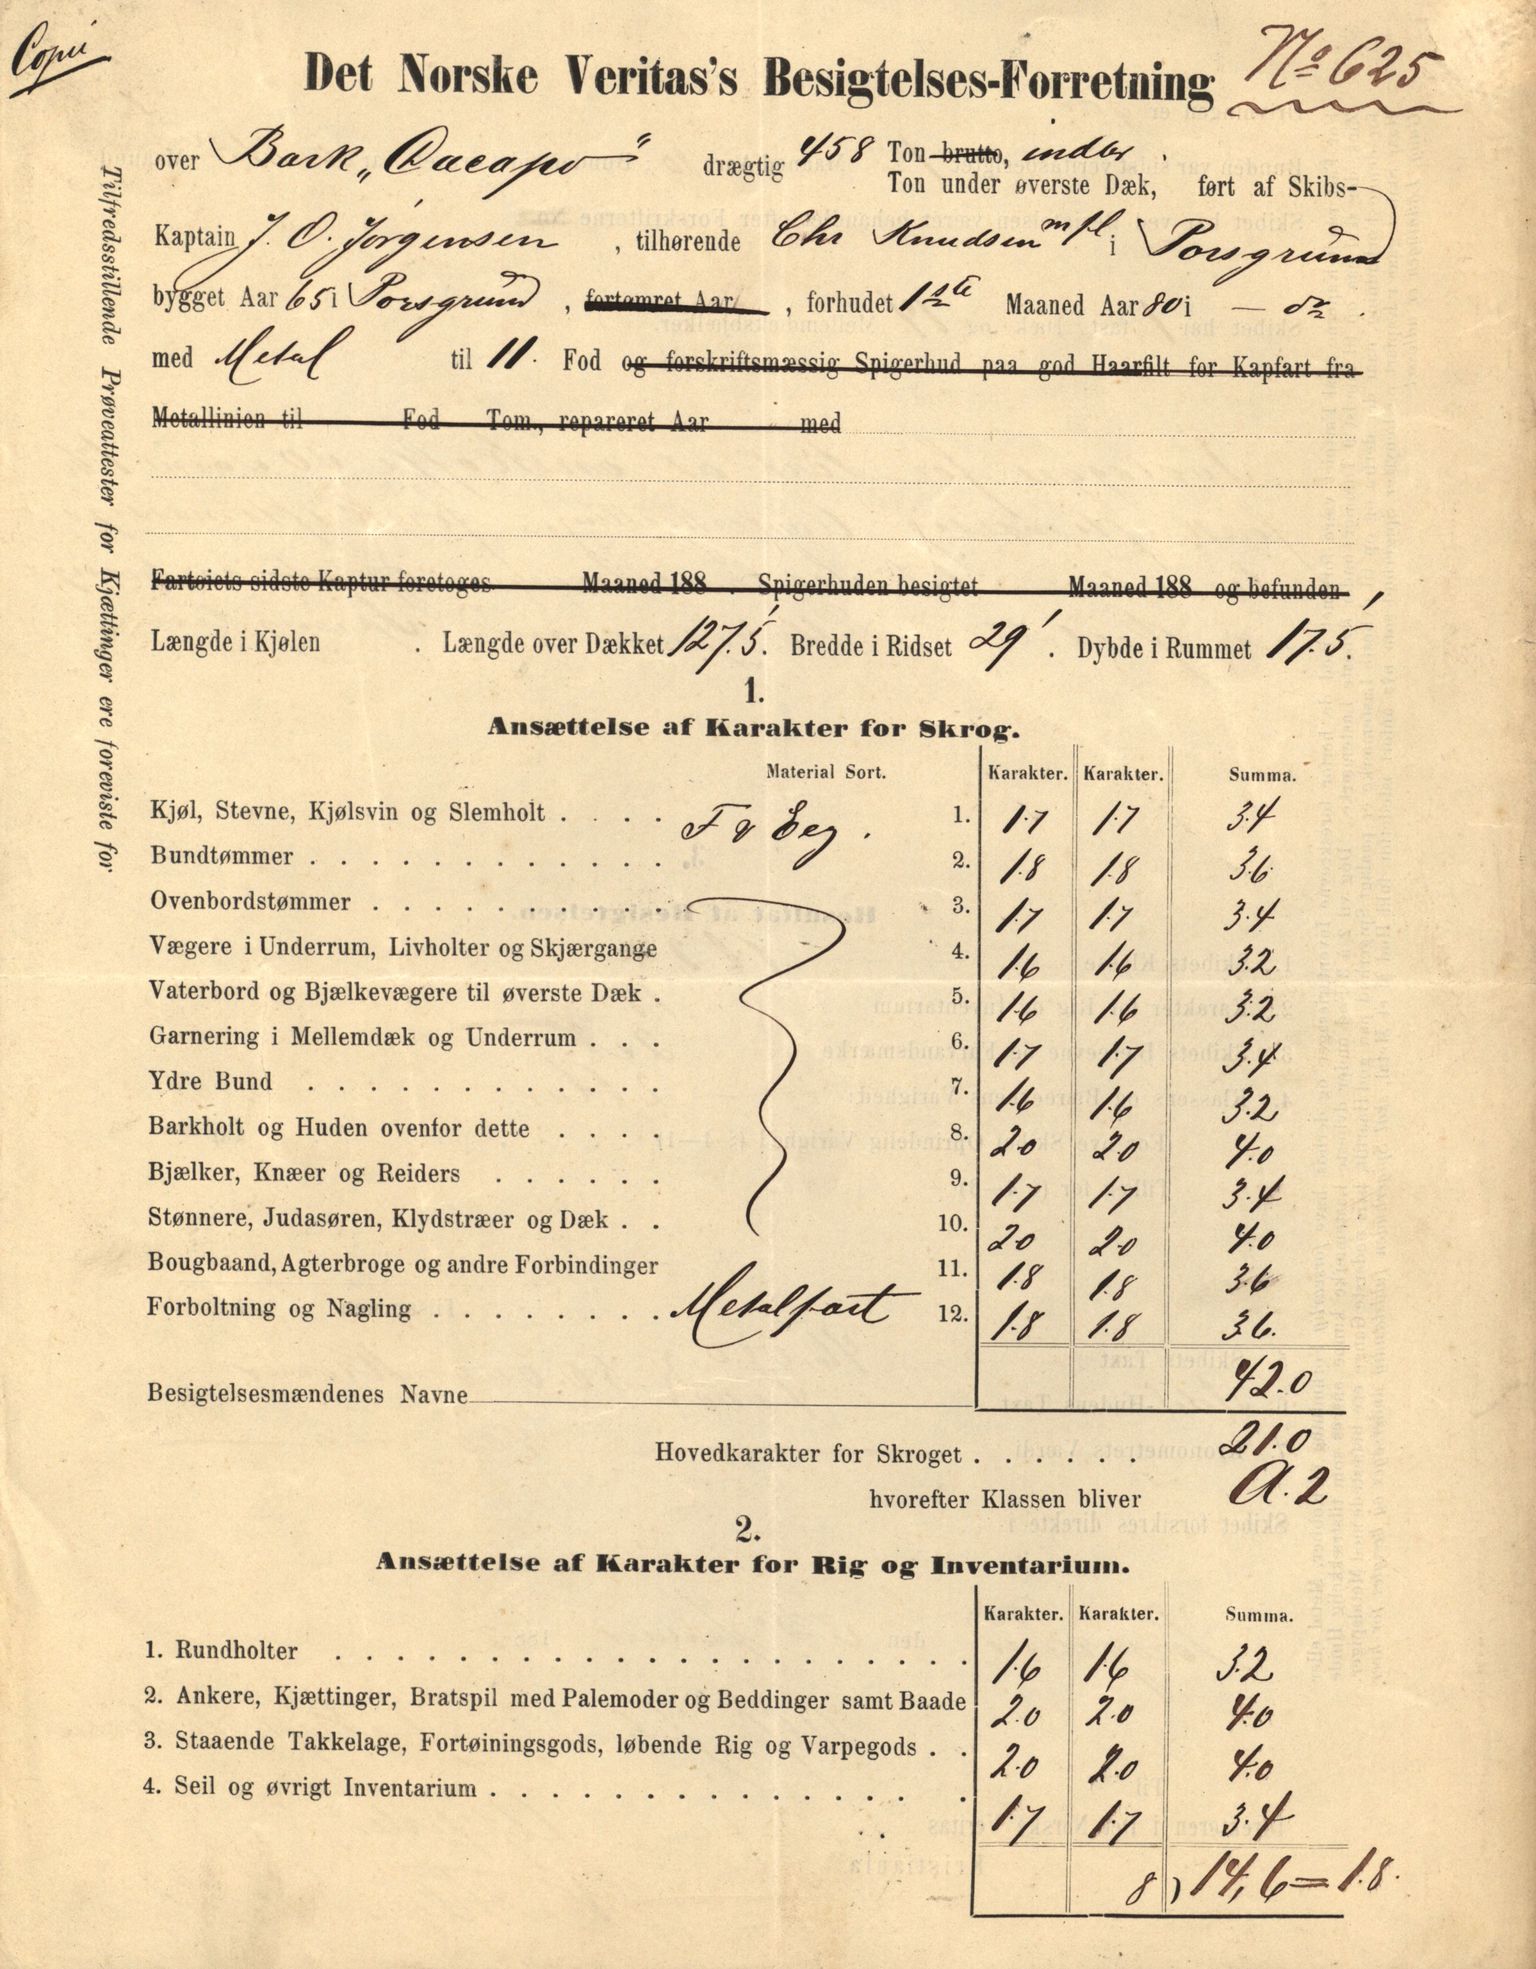 Copii
Det Norske Veritas's Besigtelses-Forretning No 625
over Bark „Dacapo" drægtig 458 Ton brutto, under
Ton under øverste Dæk, ført af Skibs-
Kaptain J. O. Jørgensen, tilhørende Chr Knudsen m fl i Porsgrund
bygget Aar 65 i Porsgrund, fortømret Aar, forhudet 1ste Maaned Aar 80 i — do.
med Metal til 11. Fod og forskriftsmæssig Spigerhud paa god Haarfilt for Kapfart fra
Metallinien til Fod Tom., repareret Aar med
Fartøiets sidste Kaptur foretoges Maaned 188 . Spigerhuden besigtet Maaned 188 og befunden
Længde i Kjølen . Længde over Dækket 127.5'. Bredde i Ridset 29'. Dybde i Rummet 17.5'.
1.
Ansættelse af Karakter for Skrog.
Material Sort. Karakter. Karakter. Summa.
Kjøl, Stevne, Kjølsvin og Slemholt . . . . F & Eeg . 1. 1.7 1.7 3.4
Bundtømmer . . . . . . . . . . . . . 2. 1.8 1.8 3.6
Ovenbordstømmer . . . . . . . . . . . 3. 1.7 1.7 3.4
Vægere i Underrum, Livholter og Skjærgange 4. 1.6 1.6 3.2
Vaterbord og Bjælkevægere til øverste Dæk . 5. 1.6 1.6 3.2
Garnering i Mellemdæk og Underrum . . . 6. 1.7 1.7 3.4
Ydre Bund . . . . . . . . . . . . . 7. 1.6 1.6 3.2
Barkholt og Huden ovenfor dette . . . . 8. 2.0 2.0 4.0
Bjælker, Knæer og Reiders . . . . . . 9. 1.7 1.7 3.4
Stønnere, Judasøren, Klydstræer og Dæk . . 10. 2.0 2.0 4.0
Bougbaand, Agterbroge og andre Forbindinger 11. 1.8 1.8 3.6
Forboltning og Nagling . . . . . . . . Metalfast 12. 1.8 1.8 3.6.
42.0
Besigtelsesmændenes Navne
Hovedkarakter for Skroget . . . . . . 21.0
hvorefter Klassen bliver A.2
2.
Ansættelse af Karakter for Rig og Inventarium.
Karakter. Karakter. Summa.
1. Rundholter . . . . . . . . . . . . . . . . 1.6 1.6 3.2
2. Ankere, Kjættinger, Bratspil med Palemoder og Beddinger samt Baade 2.0 2.0 4.0
3. Staaende Takkelage, Fortøiningsgods, løbende Rig og Varpegods . . 2.0 2.0 4.0
4. Seil og øvrigt Inventarium . . . . . . . . . . . . 1.7 1.7 3.4
8) 14,6 = 1.8.
Tilfredsstillende Prøveattester for Kjættinger ere foreviste for